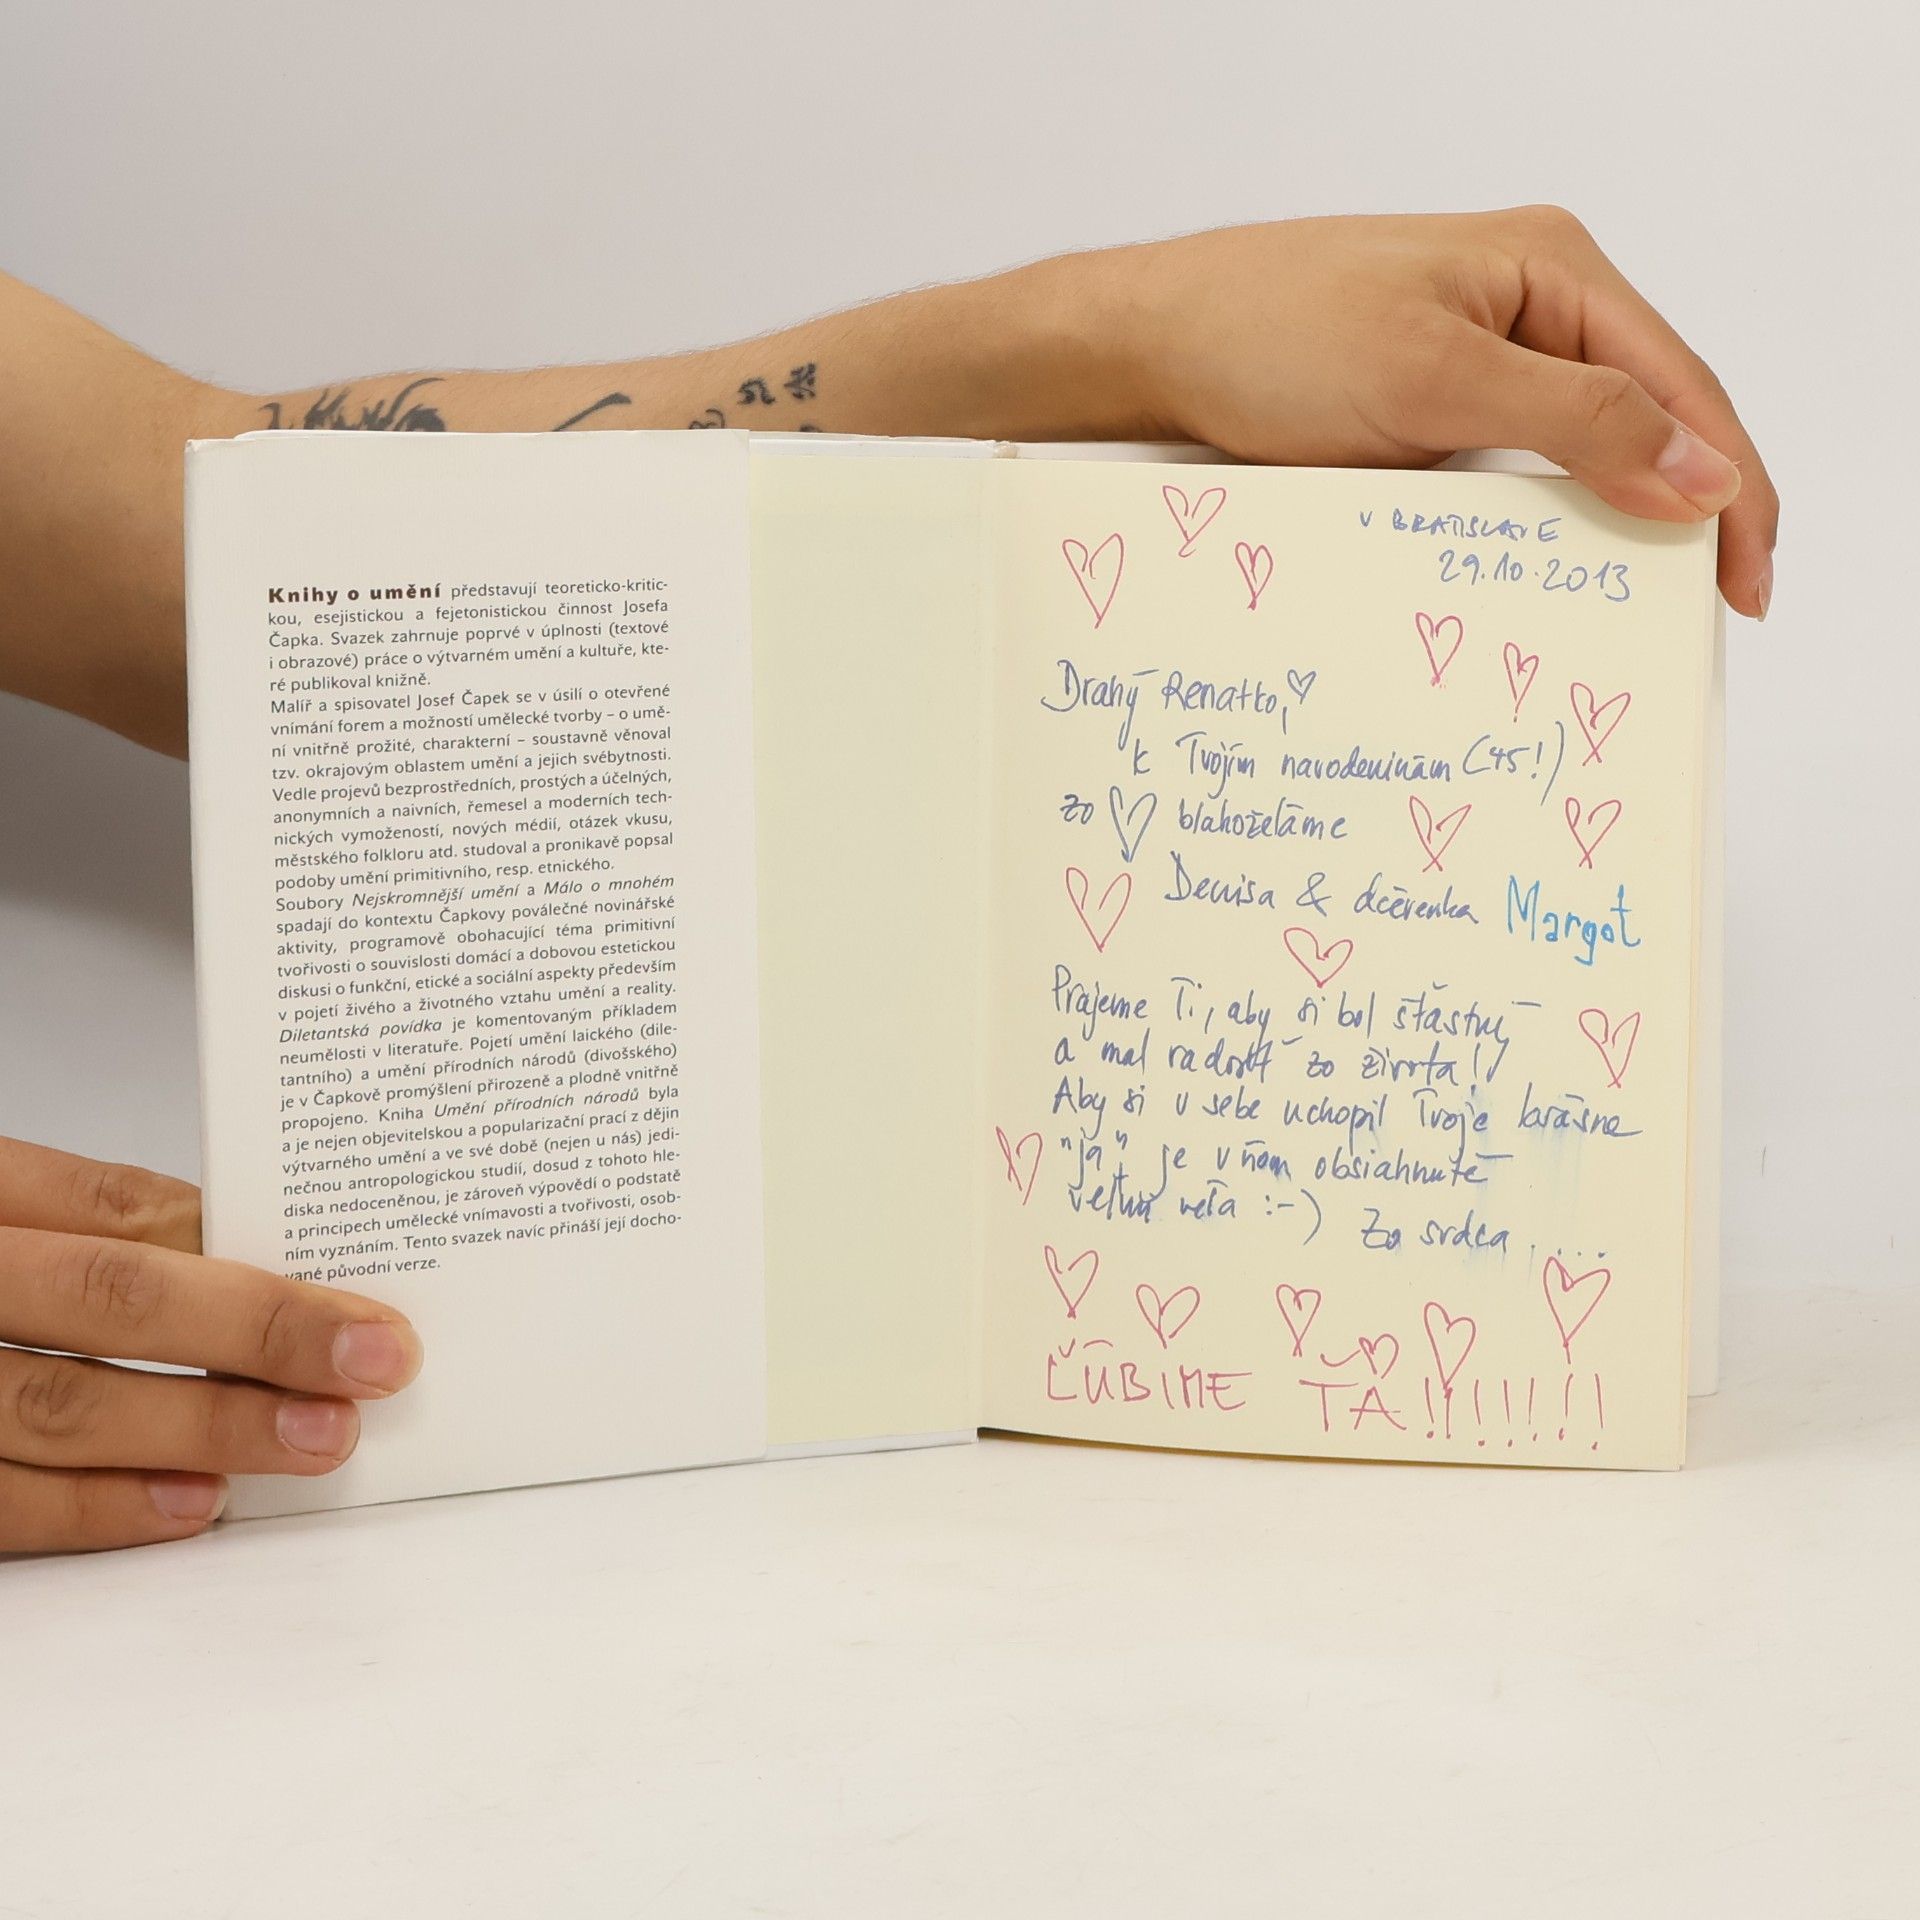 Knihy o umění představují teoreticko-kritic-
kou, esejistickou a fejetonistickou činnost Josefa
Čapka. Svazek zahrnuje poprvé v úplnosti (textové
i obrazové) práce o výtvarném umění a kultuře, kte-
ré publikoval knižně.
Malíř a spisovatel Josef Čapek se v úsilí o otevřené
vnímání forem a možností umělecké tvorby – o umě-
ní vnitřně prožité, charakterní – soustavně věnoval
tzv. okrajovým oblastem umění a jejich svébytnosti.
Vedle projevů bezprostředních, prostých a účelných,
anonymních a naivních, řemesel a moderních tech-
nických vymožeností, nových médií, otázek vkusu,
městského folkloru atd. studoval a pronikavě popsal
podoby umění primitivního, resp. etnického.
Soubory Nejskromnější umění a Málo o mnohém
spadají do kontextu Čapkovy poválečné novinářské
aktivity, programově obohacující téma primitivní
tvořivosti o souvislosti domácí a dobovou estetickou
diskusi o funkční, etické a sociální aspekty především
v pojetí živého a životného vztahu umění a reality.
Diletantská povídka je komentovaným příkladem
neumělosti v literatuře. Pojetí umění laického (dile-
tantního) a umění přírodních národů (divošského)
je v Čapkově promýšlení přirozeně a plodně vnitřně
propojeno. Kniha Umění přírodních národů byla
a je nejen objevitelskou a popularizační prací z dějin
výtvarného umění a ve své době (nejen u nás) jedi-
nečnou antropologickou studií, dosud z tohoto hle-
diska nedoceněnou, je zároveň výpovědí o podstatě
a principech umělecké vnímavosti a tvořivosti, osob-
ním vyznáním. Tento svazek navíc přináší její docho-
vané původní verze.
V BRATISLAVE
29.10.2013
Drahý Renatko,
k Tvojím narodeninám (45!)
zo blahoželáme
Denisa & dcérenka Margot
Prajeme Ti, aby si bol šťastný
a mal radosť zo života!
Aby si v sebe uchopil Tvoje krásne
"ja" je v ňom obsiahnuté
veľmi veľa :-) Zo srdca ....
ĽÚBIME ŤA!!!!!!!